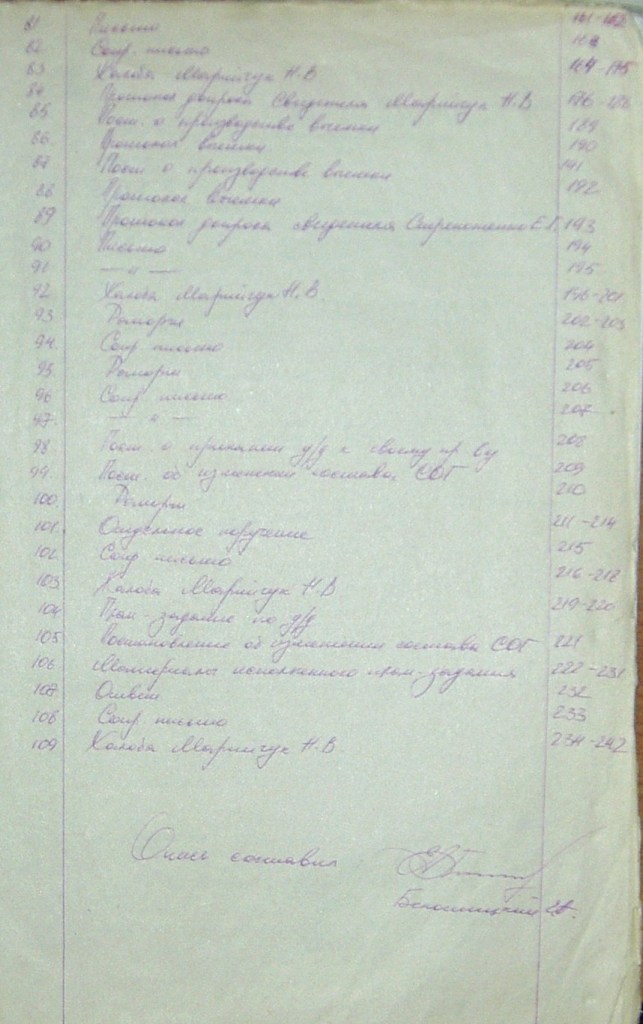 81 Письмо 161-162
82 Сопр. письмо 163
83 Жалоба Марийчук Н.В 164-175
84 Протокол допроса свидетеля Марийчук Н.В 176-188
85 Пост. о производстве выемки 189
86 Протокол выемки 190
87 Пост о производстве выемки 191
88 Протокол выемки 192
89 Протокол допроса свидетеля Е.Г. 193
90 Письмо 194
91 — " — 195
92 Жалоба Марийчук Н.В. 196-201
93 Рапорты 202-203
94 Сопр. письмо 204
95 Рапорты 205
96 Сопр. письмо 206
97. — " — 207
98 Пост. о принятии у/д к своему пр-ву 208
99. Пост. об изменении состава СОГ 209
100. Рапорты 210
101. Отдельное поручение 211-214
102. Сопр письмо 215
103 Жалоба Марийчук Н.В 216-218
104 План-задание по у/д 219-220
105 Постановление об изменении состава СОГ 221
106 Материалы исполненного план-задания 222-231
107 Ответ 232
108 Сопр. письмо 233
109 Жалоба Марийчук Н.В. 234-242
Опись составил